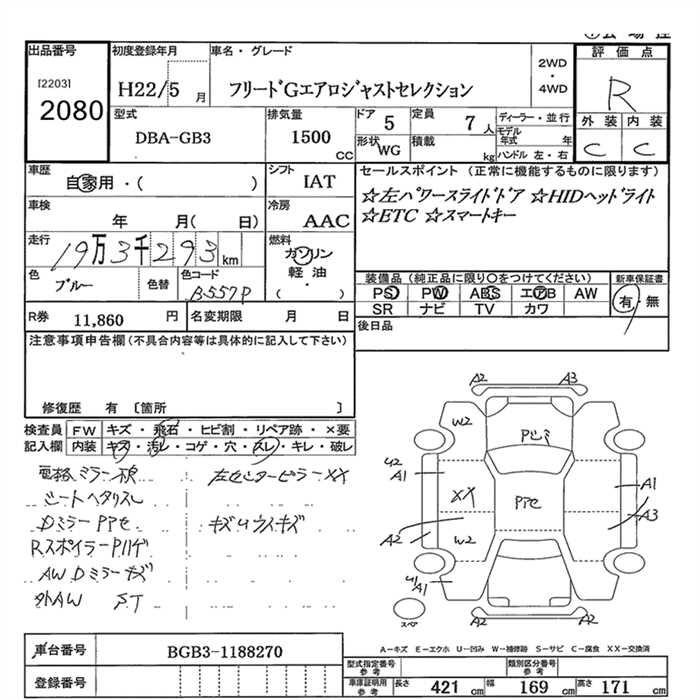 出品番号 初度登録年月 車名・グレード 評価点
[2203] H22/5月 フリードGエアロジャストセレクション 2WD・4WD R
2080
型式 排気量 ドア 定員 ディーラー・並行 外装 内装
DBA-GB3 1500CC 5 7人 モデル年式 年 C C
形状 WG 積載 kg ハンドル 左・右
車歴 シフト セールスポイント (正常に機能するものに限ります)
自家用・( ) IAT ☆左パワースライドドア ☆HIDヘッドライト
車検 冷房 ☆ETC ☆スマートキー
年 月( 日) AAC
走行 燃料
19万3千293km ガソリン
軽油
( )
色 色替 色コード 装備品(純正品に限り○をつけてください) 新車保証書
ブルー B557P PS PW ABS エアB AW 有・無
SR ナビ TV カワ
R券 11,860円 名変期限 月 日 後日品
注意事項申告欄(不具合内容等は具体的に記入して下さい)
修復歴 有 〔箇所 〕
検査員 FW キズ・飛石・ヒビ割・リペア跡・×要
記入欄 内装 キズ・汚レ・コゲ・穴・スレ・キレ・破レ
電格ミラー 左センターピラーXX
シートヘタリスレ
Dミラー キズ
Rスポイラー
AW Dミラーキズ
外AW ST
A2 A3
W2
A1
A1
XX
A3
A2
W2
A1
A2 A2
A-キズ E-エクボ U-凹み W-補修跡 S-サビ C-腐食 XX-交換済
車台番号 BGB3-1188270
登録番号
型式指定番号参考 類別区分番号参考
車庫証明用参考 長さ 421cm 幅 169cm 高さ 171cm